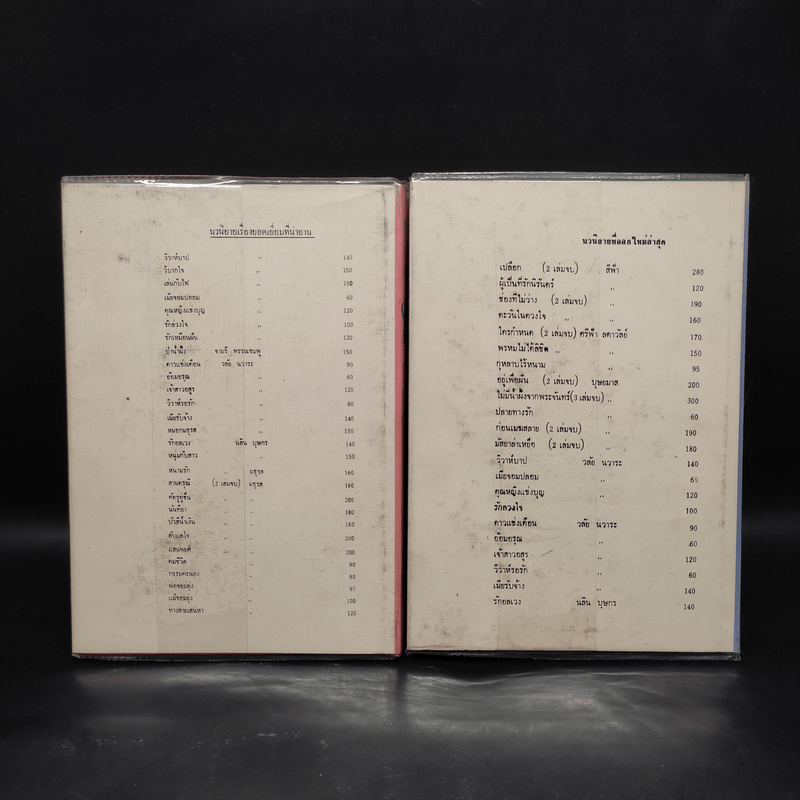 นวนิยายเรื่องยอดเยี่ยมที่น่าอ่าน
วิวาห์บาป ,, 140
วิบากใจ ,, 150
เล่นกับไฟ ,, 150
เมียจอมปลอม ,, 60
คุณหญิงแข่งบุญ ,, 120
รักลวงใจ ,, 100
รักเหมือนฝัน ,, 120
ป่าน้ำผึ้ง จามรี พรรณชมพู 150
ดาวแข่งเดือน วลัย นวาระ 90
อ้อมอรุณ ,, 60
เจ้าสาวอสูร ,, 120
วิวาห์รอรัก ,, 60
เมียรับจ้าง ,, 140
หมอกมธุรส ,, 150
รักอลเวง นลิน บุษกร 140
หนุ่มกับสาว ,, 150
หนามรัก ,, มธุรส 160
สามดรุณี (2 เล่มจบ) มธุรส 180
คัตรูคู่ชื่น ,, ,, 200
นันทิยา ,, ,, 180
บัวสีน้ำเงิน ,, ,, 180
ลับแลใจ ,, ,, 200
แสนพยศ ,, ,, 200
คมชีวิต ,, 90
กรรมคะนอง ,, 80
พ่อจอมยุ่ง ,, 90
แม่จอมยุ่ง ,, 100
ทางสายเสน่หา ,, 120
นวนิยายที่ออกใหม่ล่าสุด
เปลือก (2 เล่มจบ) สีฟ้า 280
ผู้เป็นที่รักนิรันดร์ ,, 120
ช่องที่ไม่ว่าง (2 เล่มจบ) ,, 190
ตะวันในดวงใจ ,, ,, 160
ใครกำหนด (2 เล่มจบ) ศรีฟ้า ลดาวัลย์ 170
พรหมไม่ได้ลิขิต ,, ,, 150
กุหลาบไร้หนาม ,, 95
อยู่เพื่อฝัน (2 เล่มจบ) บุษยมาส 200
ไม่มีน้ำผึ้งจากพระจันทร์(3 เล่มจบ) ,, 300
ปลายทางรัก ,, 60
ก่อนเมฆสลาย (2 เล่มจบ) ,, 190
มัสยาล่าเหยื่อ (2 เล่มจบ) ,, 180
วิวาห์บาป วลัย นวาระ 140
เมียจอมปลอม ,, 60
คุณหญิงแข่งบุญ ,, 120
รักลวงใจ ,, 100
ดาวแข่งเดือน วลัย นวาระ 90
อ้อมอรุณ ,, 60
เจ้าสาวอสูร ,, 120
วิวาห์รอรัก ,, 60
เมียรับจ้าง ,, 140
รักอลเวง นลิน บุษกร 140